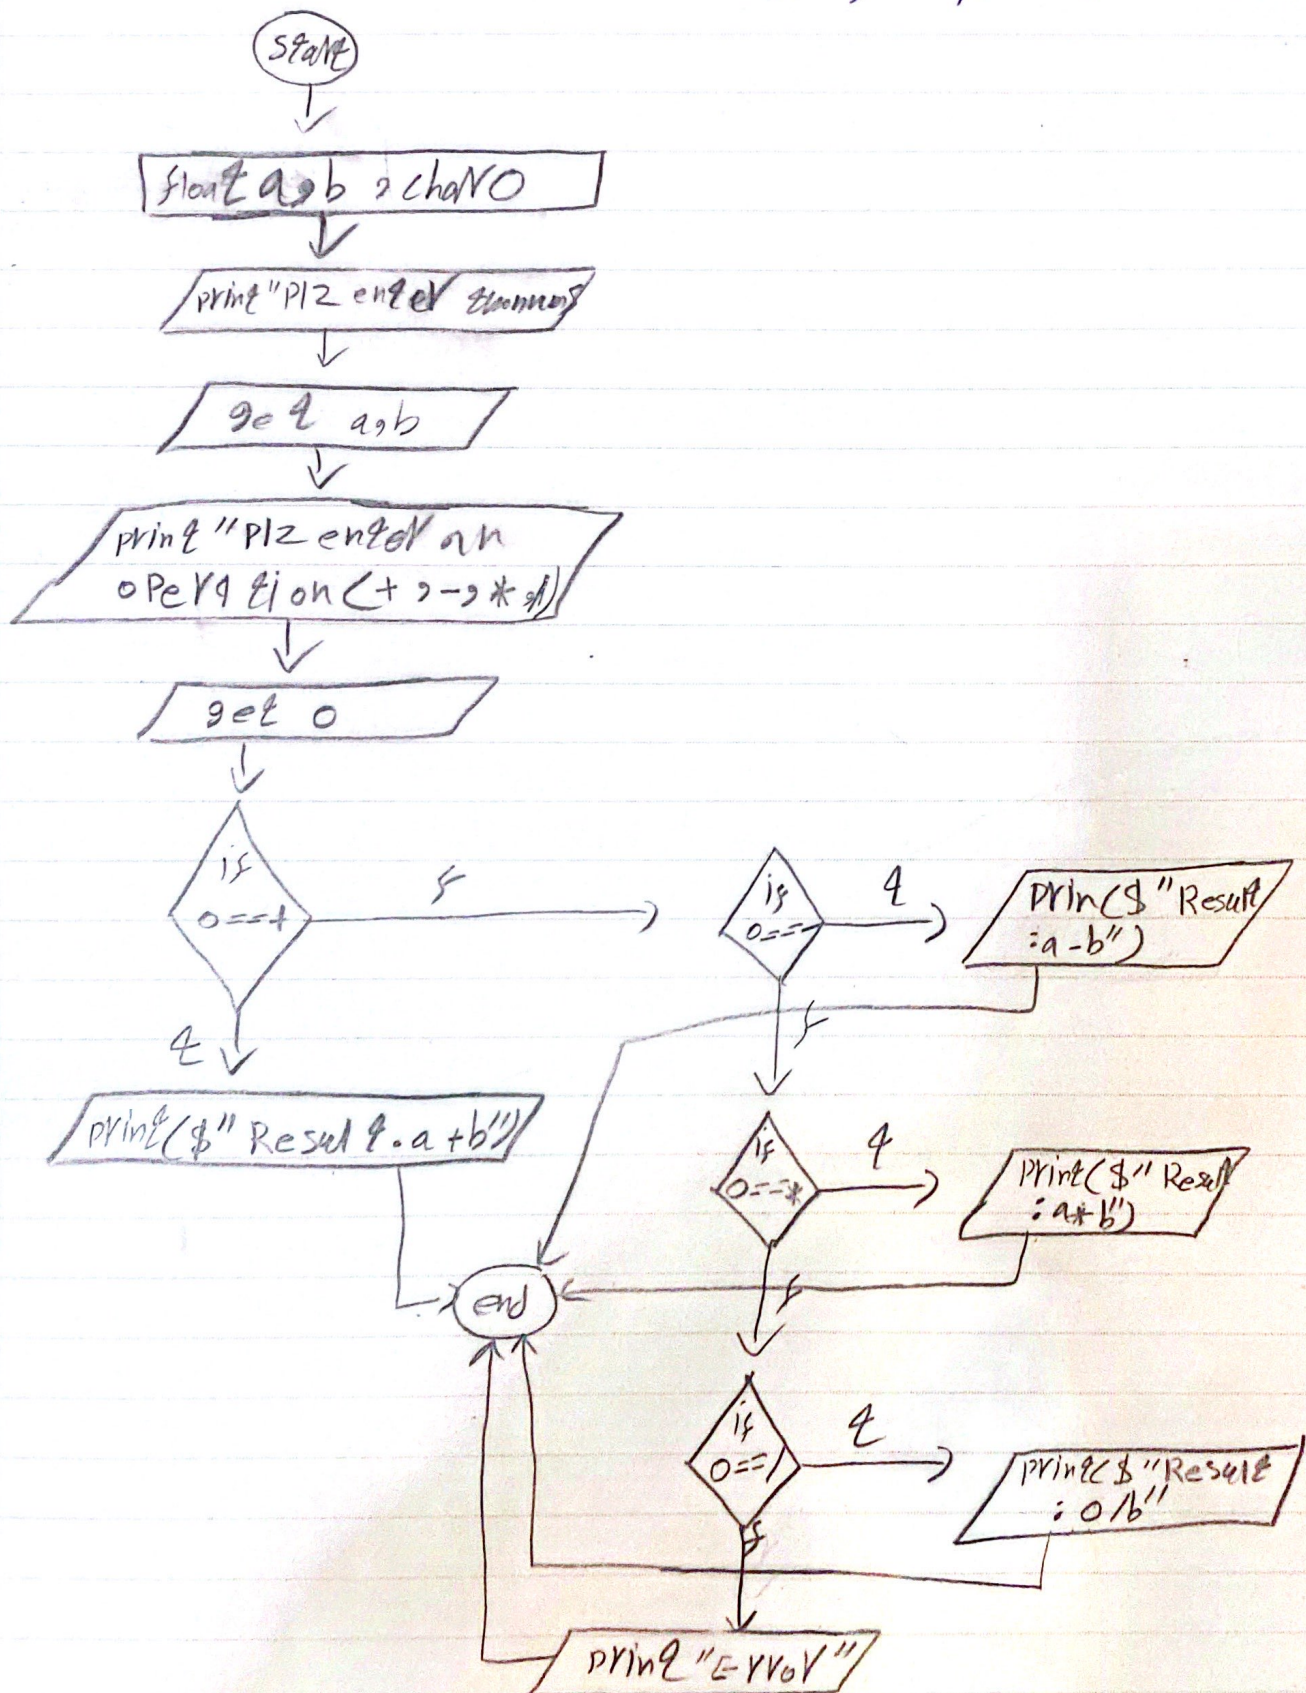 start
float a,b , char O
print "Plz enter
get a,b
print "Plz enter an
operation (+ ,-, * ,/)
get o
if
o==+
f
if
o==-
t
prin($"Result
:a-b")
t
f
print($"Result.a+b")
if
o==*
t
print($"Resul
:a*b")
end
f
if
o==/
t
print($"Result
: o/b"
f
print "Error"